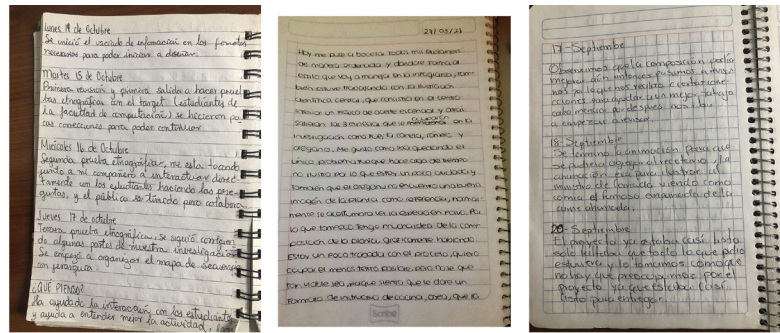 Lunes 14 de Octubre
Se inició el vaciado de información en los
necesarios para poder iniciar a diseñar.
Martes 15 de Octubre
Primera revisión y primera salida a hacer
etnográficas con el target (estudiantes de
la facultad de computación) se hicieron
correcciones para poder continuar
Miércoles 16 de Octubre
Segunda prueba etnográfica, me esta tocando
junto a mi compañera a interactuar direc
tamente con los estudiantes haciendo las pre
guntas, y el público es tímido para colaborar.
Jueves 17 de octubre
Tercera prueba etnográfica, se siguió
do algunas partes de nuestra investigación
Se empezó a organizar el mapa de
con jerarquía.
¿QUÉ PIENSO?
Ha ayudado la interacción con los estudiantes
y ayuda a entender mejor la actividad.
27/03/21
Hoy me puse a bocetar toda mi
de manera ordenada y dandole forma al
estilo que voy a manejar en la infografía, tam
bien estuve trabajando con la ilustración
científica central, que consiste en el centro
un frasco de aceite esencial y
saldran las 3 esencias que la en la
investigación como fue, la canela, romero y
orégano. Me gusta como esta quedando el
unico problema fue que hace algo de tiempo
no ilustro por lo que estoy un poco oxidada y
tambien que el orégano no encuentro una buena
imagen de la planta como referencia, normal
mente se acostumbra ver la especia en polvo. Por
lo que tampoco tengo mucha idea de la com
posición de la planta graficamente hablando.
Estoy un poco trabada con el proceso, quiero
ocupar el menor texto posible, pero no se que
tan viable sea, ya que siento que le dare un
formato de instructivo de cocina, osea, que la
Scribe
17-Septiembre
Observamos que la composición podía
mejorar aún entonces pusimos a
nos por lo que nos resulto
para ayudar un mejor trabajo
18-Septiembre
Se termino la animación para que
se pudiera agregar al recetario, la
animación era para ilustrar al
ministro de comida viendo como
comia el famoso empanada de la
carne ahumada.
20-Septiembre
El proyecto ya estaba casi listo
solo faltaba que todo lo que
estuviera y lo tomamos como que
no hay que preocuparnos por el
proyecto ya que estaba casi
listo para entregar.